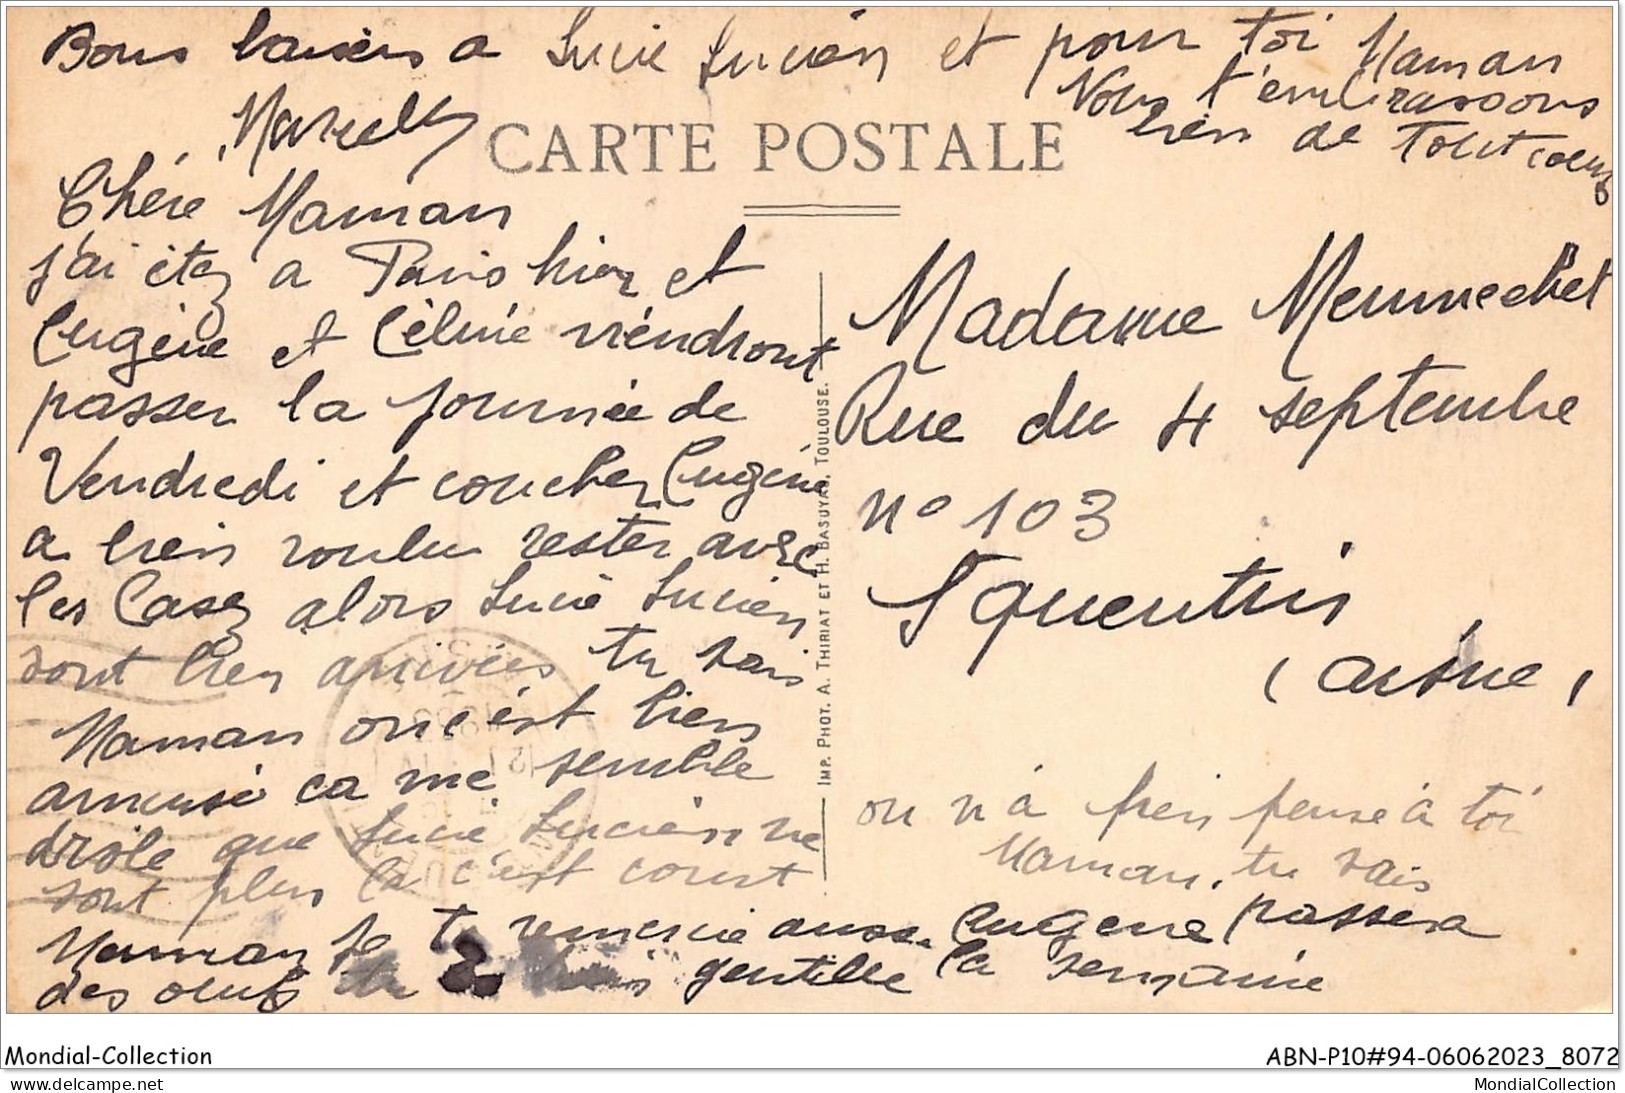 Bons baisers a Lucie Lucién et pour toi Maman
Nous t'embrassons
bien de tout coeur
Marcelle
CARTE POSTALE
Chére Maman
j'ai étez a Paris hier et
Eugéne et Céline viéndront
passer la journée de
Vendredi et coucher Eugéne
a bien voulu rester avec
les Casez alors Lucie Lucien
sont bien arrivées tu sais
Maman on c'est bien
amusé ca me semble
drôle que Lucie Luciénn ne
sont plus la c'est court
Maman je te remercie aussi
des oeufs tu bien gentille
Eugene passera
la semaine
IMP. PHOT. A. THIRIAT ET H. BASUYAU, TOULOUSE.
Madame Mennechet
Rue du 4 septembre
n° 103
St quentin
(aisne)
on n'a bien pensé à toi
Maman, tu sais
Mondial-Collection
ABN-P10#94-06062023_8072
delcampe.net
MondialCollection